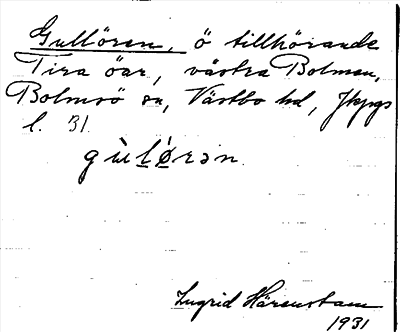 Gullören, ö tillhörande
Tira öar, västra Bolmen,
Bolmsö sn, Västbo hd, Jkpgs
l. 31.
gùlø̀rən
Ingrid Härenstam
1931